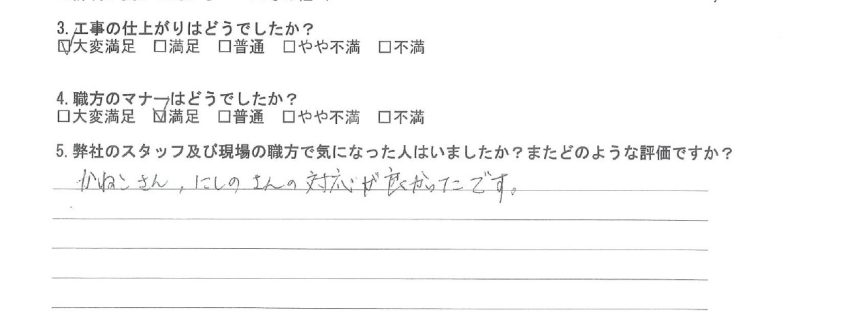 3. 工事の仕上がりはどうでしたか？
☑大変満足 □満足 □普通 □やや不満 □不満
4. 職方のマナーはどうでしたか？
□大変満足 ☑満足 □普通 □やや不満 □不満
5. 弊社のスタッフ及び現場の職方で気になった人はいましたか？またどのような評価ですか？
かねこさん，にしのさんの対応が良かったです。